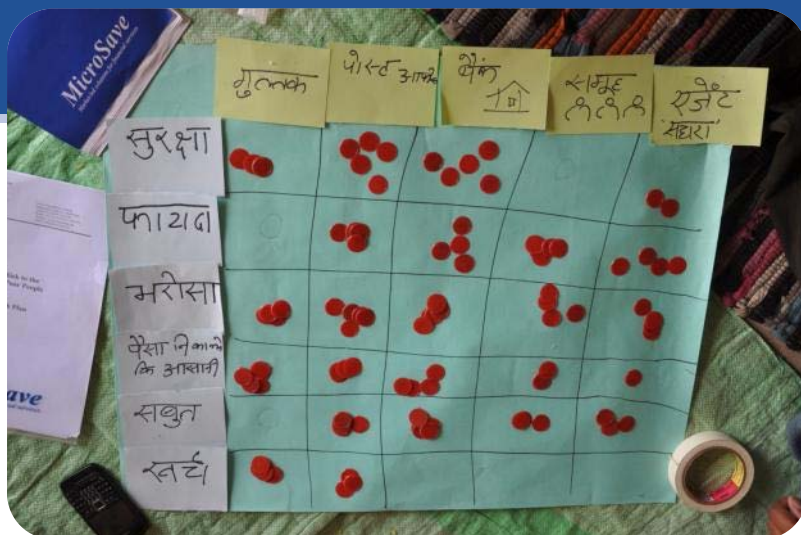 MicroSave
गुल्लक
पोस्ट आफिस
बैंक
समूह
एजेंट
'सहारा'
सुरक्षा
फायदा
भरोसा
पैसा निकालने
कि आसानी
सबुत
खर्चा
ave